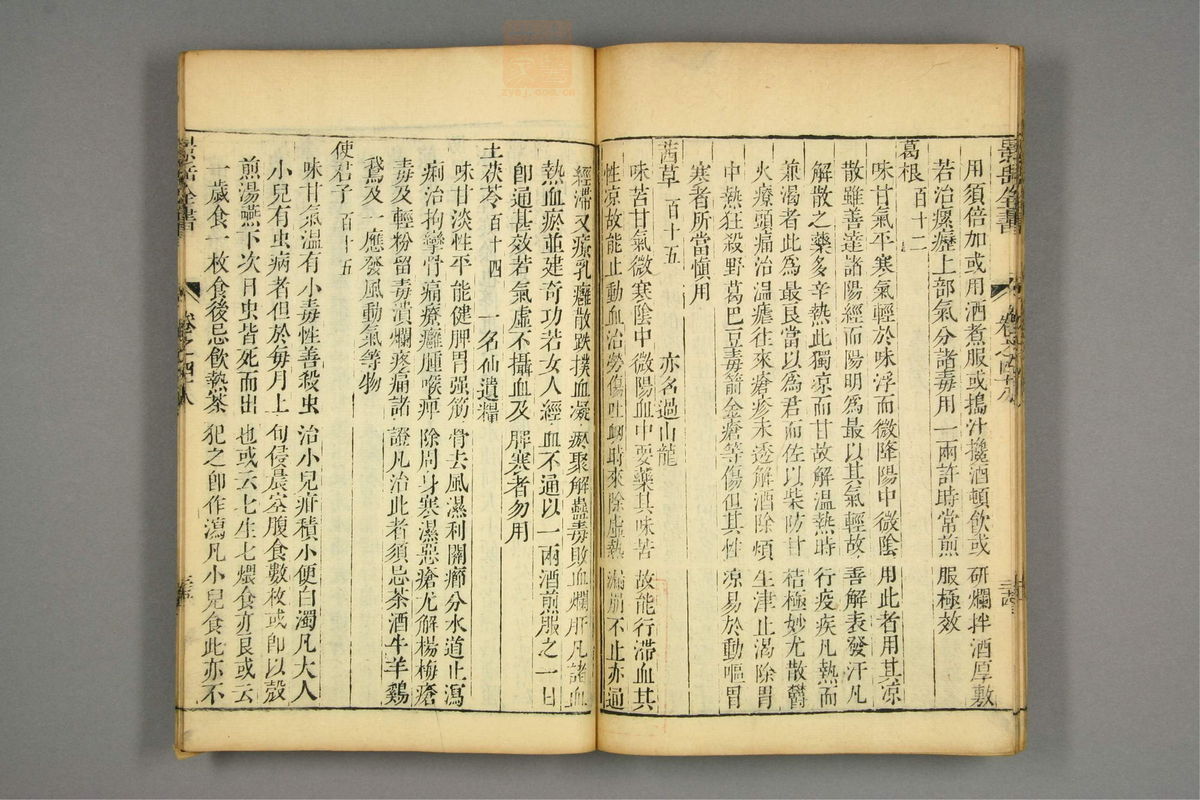 景岳全書 卷之四十八
用須倍加或用酒煮服或搗汁攙酒頓飲或研爛拌酒厚敷
若治瘰癧上部氣分諸毒用一兩許時常煎服極效
葛根 百十二
味甘氣平寒氣輕於味浮而微降陽中微陰用此者用其凉
散雖善達諸陽經而陽明爲最以其氣輕故善解表發汗凡
解散之藥多辛熱此獨凉而甘故解温熱時行疫疾凡熱而
兼渴者此爲最良當以爲君而佐以柴防甘桔極妙尤散鬱
火療頭痛治温瘧往來瘡疹未透解酒除煩生津止渴除胃
中熱狂殺野葛巴豆毒箭金瘡等傷但其性凉易於動嘔胃
寒者所當愼用
茜草 百十五 亦名過山龍
味苦甘氣微寒陰中微陽血中要藥其味苦故能行滯血其
性凉故能止動血治勞傷吐衂時來除虚熱漏崩不止亦通
經滯又療乳癰散跌撲血凝瘀聚解蠱毒敗血爛肝凡諸血
熱血瘀並建奇功若女人經血不通以一兩酒煎服之一日
卽通甚效若氣虛不攝血及脾寒者勿用
土茯苓 百十四 一名仙遺糧
味甘淡性平能健脾胃强筋骨去風濕利關節分水道止瀉
痢治拘攣骨痛療癰腫喉痺除周身寒濕惡瘡尤解楊梅瘡
毒及輕粉留毒潰爛疼痛諸證凡治此者須忌茶酒牛羊鷄
鵞及一應發風動氣等物
使君子 百十五
味甘氣温有小毒性善殺虫治小兒疳積小便白濁凡大人
小兒有虫病者但於每月上旬侵晨空腹食數枚或卽以殼
煎湯嚥下次日虫皆死而出也或云七生七煨食亦良或云
一歲食一枚食後忌飲熱茶犯之卽作瀉凡小兒食此亦不
景岳全書 卷之四十八